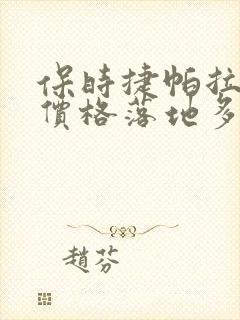 保時捷帕拉
價格落地多
趙芬